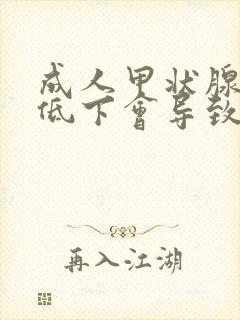 成人甲状腺
低下會导致
再入江湖